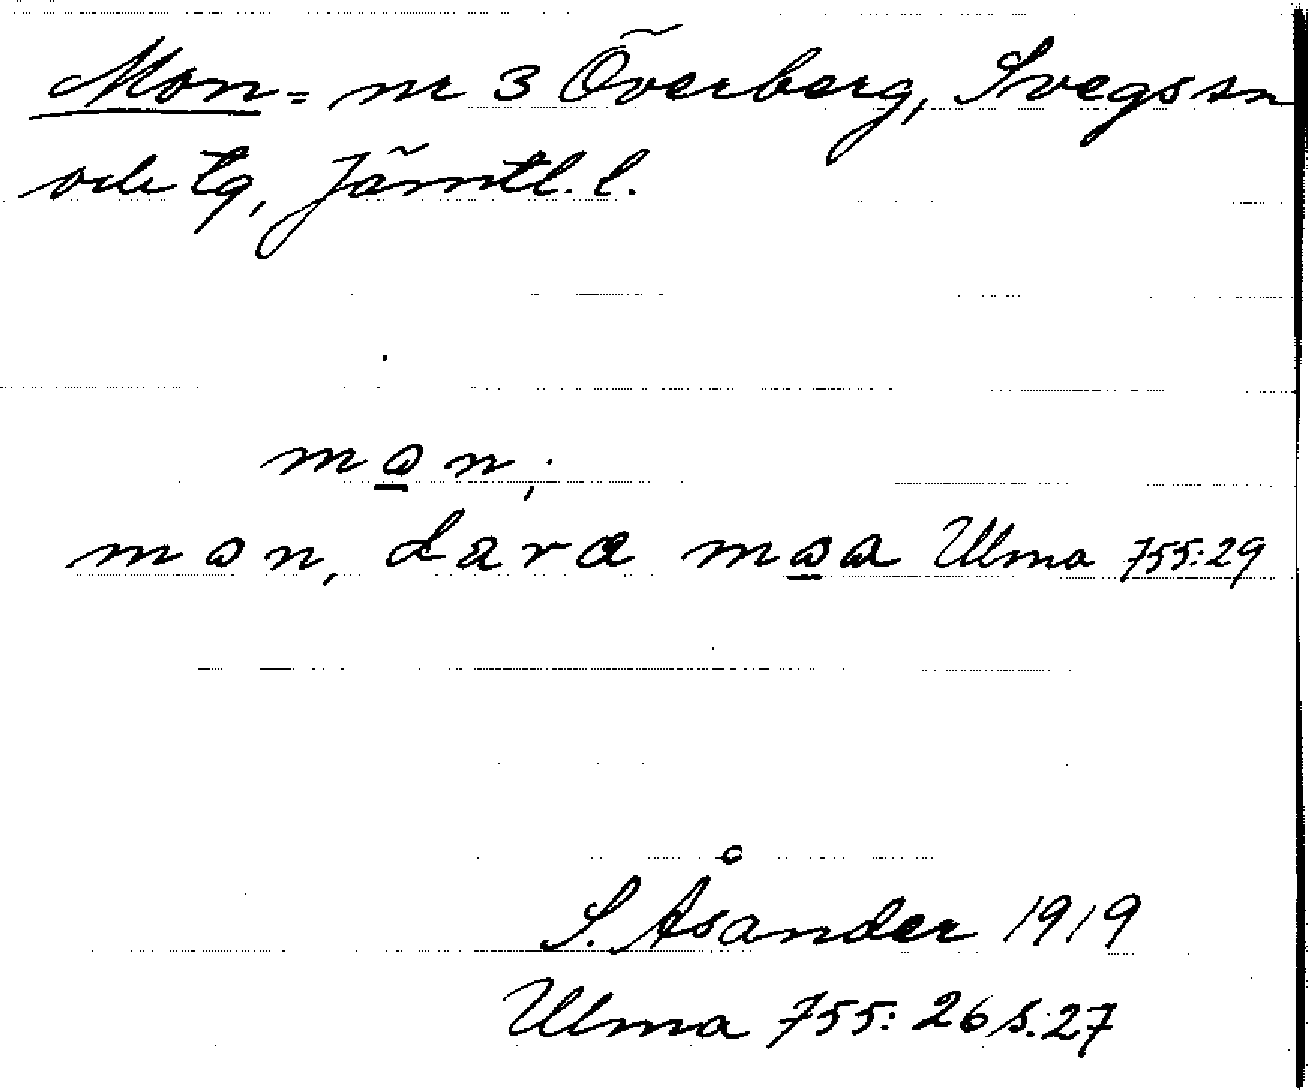 Mon = nr 3 Överberg, Svegs sn
och tg, Jämtl. l.
mɷn;
mɷn, dara mɷa Ulma 755:29
S. Åsander 1919
Ulma 755: 26 s. 27